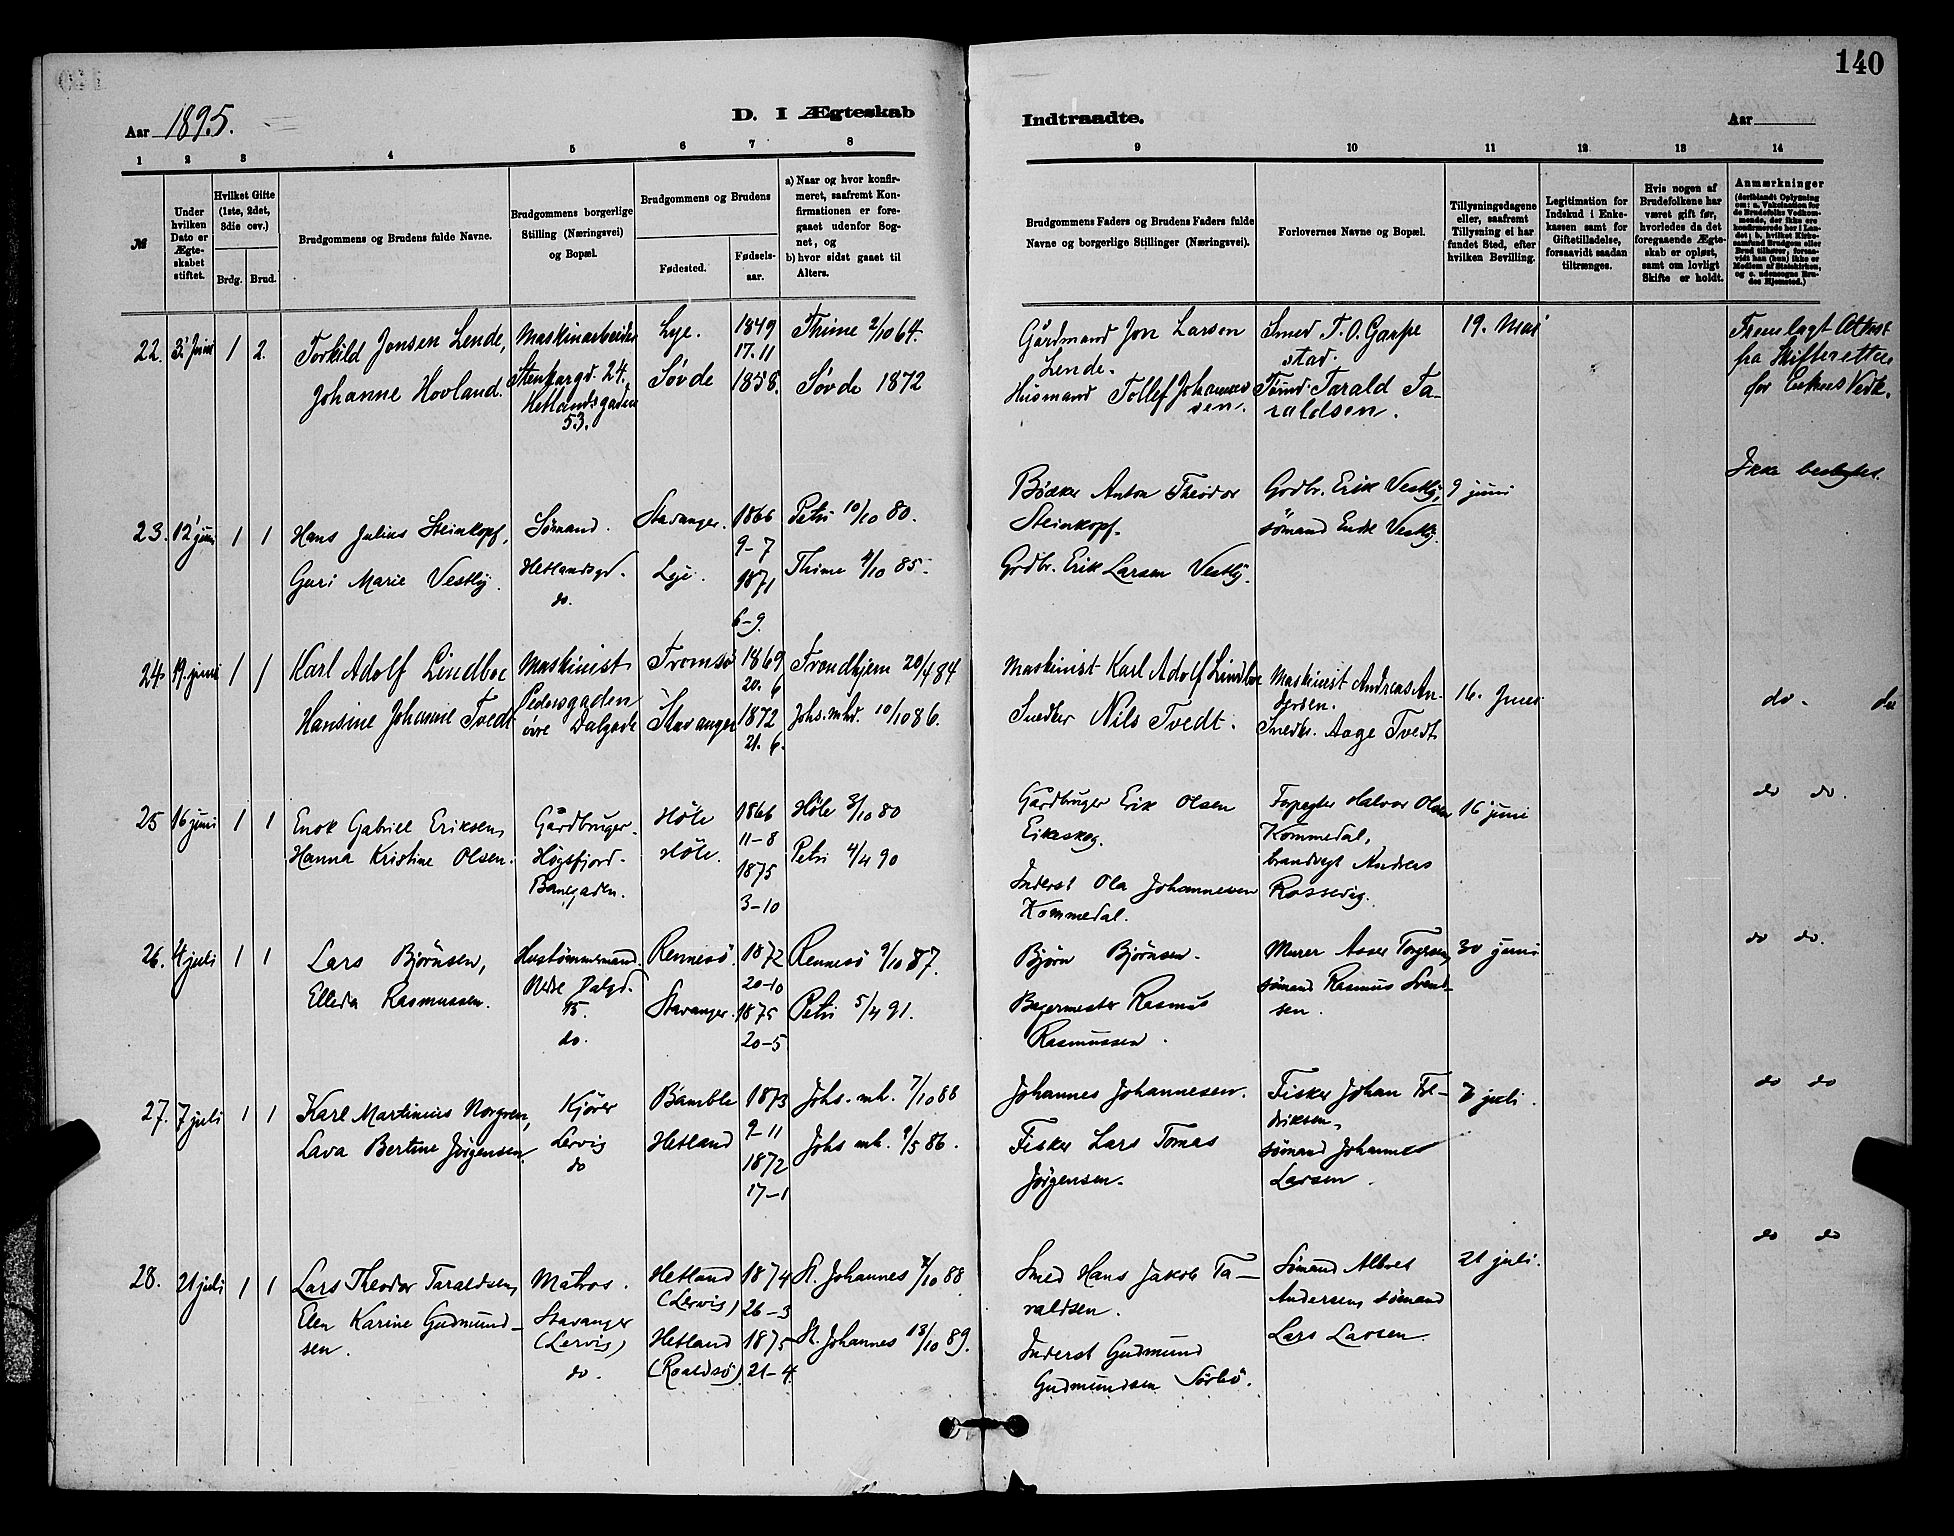 140
Aar 1895.
D. I Ægteskab
Indtraadte.
Aar
1 2 3 4 5 6 7 8
9 10 11 12 13 14
№
Under hvilken Dato er Ægteskabet stiftet.
Hvilket Gifte (1ste, 2det, 3die osv.)
Brdg. Brud.
Brudgommens og Brudens fulde Navne.
Brudgommens borgerlige Stilling (Næringsvei) og Bopæl.
Brudgommens og Brudens
Fødested.
Fødselsaar.
a) Naar og hvor konfirmeret, saafremt Konfirmationen er foregaaet udenfor Sognet, og
b) hvor sidst gaaet til Alters.
Brudgommens Faders og Brudens Faders fulde Navne og borgerlige Stillinger (Næringsvei).
Forlovernes Navne og Bopæl.
Tillysningsdagene eller, saafremt Tillysning ei har fundet Sted, efter hvilken Bevilling.
Legitimation for Indskud i Enkekassen samt for Giftetilladelse, forsaavidt saadan tiltrænges.
Hvis nogen af Brudefolkene har været gift før, hvorledes da det foregaaende Ægteskab er opløst, samt om lovligt Skifte er holdt.
Anmærkninger (deriblandt Oplysning om: a. Vaksination for de Brudefolks Vedkommende, der ikke ere konfirmerede her i Landet; b. hvilket Kirkesamfund Brudgom eller Brud tilhører, forsaavidt han (hun) ikke er Medlem af Statskirken, og c. udensogns Brudes Hjemsted.)
22. 3' Juni 1 2.
Torkild Jonsen Lende,
Johanne Hovland.
Maskinarbeider
Stenkargd. 24.
Hetlandsgaden
53.
Lye.
Søvde
1849
17.11
1858.
Thime 2/10 64.
Søvde 1872
Gårdmand Jon Larsen
Lende.
Husmand Tollef Johannes
sen.
Smed T. O. Garpe
stad.
Tømd. Tarald Ta-
raldsen.
19. Mai
Fremlagt Attest
fra Skifteretten
for Enkens Vedk.
23. 12' juni 1 1
Hans Julius Steinkopf,
Guri Marie Vestly.
Sømand.
Hetlandsgd.
do.
Stavanger.
Lye.
1866
9-7
1871
6-9.
Petri 10/10 80.
Thime 4/10 85.
Bødker Anton Theodor
Steinkopf.
Grdbr. Erik Larsen Vestly.
Grdbr. Erik Vestly,
sømand Endre Vestly.
9 juni
Ikke beslegtet.
24. 19. juni 1 1
Karl Adolf Lindboe
Hansine Johannie Tvedt
Maskinist
Pedersgaden
øvre Dalgade
Tromsø
Stavanger
1869
20. 6
1872
21. 6.
Trondhjem 20/4 84
Johs. mhd. 10/10 86.
Maskinist Karl Adolf Lindboe
Snedker Nils Tvedt.
Maskinist Andreas An-
dersen.
Snedkr. Aage Tvedt
16. Juni
do.
25 16 juni 1 1
Enok Gabriel Eriksen,
Hanna Kristine Olsen.
Gårdbruger.
Høgsfjord.
Banegaden.
Høle
Høle.
1866
11-8
1875
3-10
Høle 3/10 80
Petri 4/4 90
Gårdbruger Erik Olsen
Eikeskog.
Inderst Ola Johannesen
Kommedal.
Halvor Olsen
Kommedal,
brandvagt Andreas
Rossevig.
16 juni
do do.
26. 4 juli 1 1
Lars Bjørnsen,
Elleda Rasmussen.
Hustømmermand.
Nedre Dalgd.
15.
do.
Rennesø.
Stavanger.
1872
20-10
1875
20-5
Rennesø 9/10 87.
Petri 5/4 91.
Bjørn Bjørnsen.
Bagermester Rasmus
Rasmussen.
Murer Asser Torgersen,
sømand Rasmus Svend-
sen.
30 juni
do do.
27. 7 juli 1 1
Karl Martinius Norgren,
Lava Bertine Jørgensen
Kjører
Lervig
do
Bamble
Hetland
1873
9-11
1872
17-1
Johs. mh. 7/10 88
Johs mh. 9/5 86.
Johannes Johannesen.
Fisker Lars Tomas
Jørgensen.
Fisker Johan Fre-
driksen,
sømand Johannes
Larsen.
7 juli.
do do
28. 21 juli 1 1
Lars Theodor Taraldsen,
Elen Karine Gudmund-
sen.
Matros.
Stavanger
(Lervig)
do.
Hetland
(Lervig)
Hetland
(Roaldsø)
1874
26-3
1875
21-4
St. Johannes 7/10 88
St. Johannes 13/10 89.
Smed Hans Jakob Ta-
raldsen.
Inderst Gudmund
Gudmundsen Sørbø.
Sømand Albret
Andersen, sømand
Lars Larsen.
21 juli.
do do